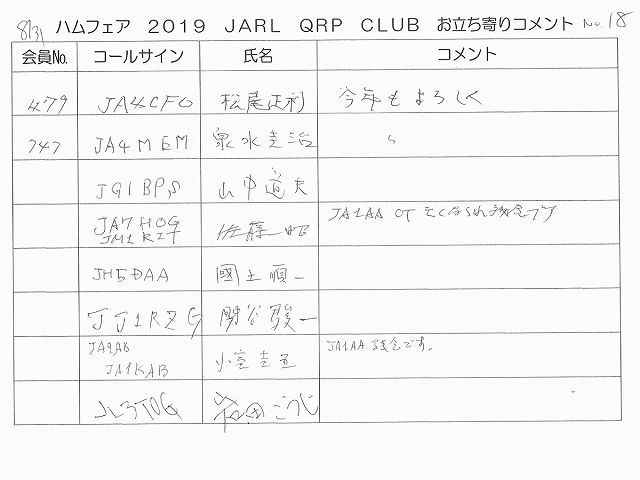 8/31 ハムフェア 2019 JARL QRP CLUB お立ち寄りコメント No.18
会員No. コールサイン 氏名 コメント
479 JA4CFO 松尾正利 今年もよろしく
747 JA4MEM 泉水圭治 〃
JG1BPS 山中道夫
JA7HOG 佐藤一昭 JA1AA OT 亡くなられ残念です
JM1RZT
JH5DAA 國土順一
JJ1RZG 関谷 一
JA9AB 小室圭五 JA1AA 残念です。
JA1KAB
JL3TOG 岩田こうじ